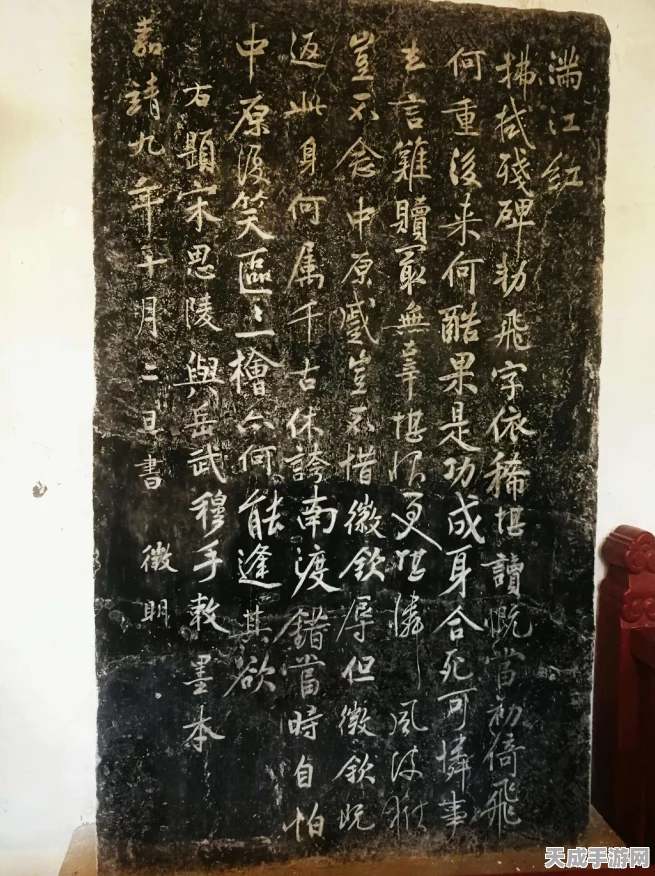 满江红
拂拭残碑勑飛字依稀堪讀慨當初倚飛
何重後来何酷果是功成身合死可憐事
去言難贖最無辜堪恨更堪憐風波獄
豈不念中原蹙豈不惜徽欽辱但徽欽既
返此身何属千古休誇南渡錯當時自怕
中原復笑區〻一檜亦何能逢其欲
右題宋思陵與岳武穆手敕墨本
嘉靖九年十月二日書 徵明
天成手游网